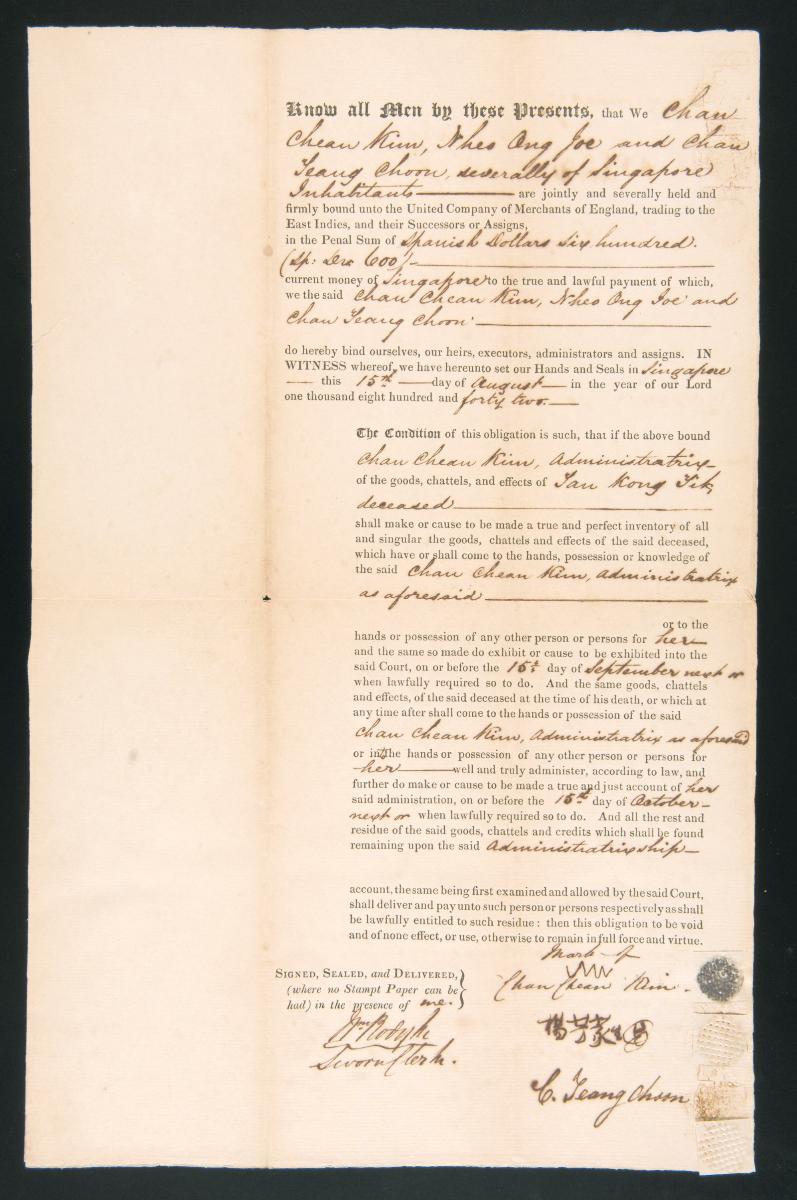 Know all Men by these Presents, that We Chan
Chean Kim, Nheo Ong Joe and Chan
Teang Choon, severally of Singapore
Inhabitants are jointly and severally held and
firmly bound unto the United Company of Merchants of England, trading to the
East Indies, and their Successors or Assigns,
in the Penal Sum of Spanish Dollars Six hundred.
(Sp: Drs 600)
current money of Singapore to the true and lawful payment of which,
we the said Chan Chean Kim, Nheo Ong Joe and
Chan Teang Choon
do hereby bind ourselves, our heirs, executors, administrators and assigns. IN
WITNESS whereof, we have hereunto set our Hands and Seals in Singapore
— this 15th — day of August — in the year of our Lord
one thousand eight hundred and forty two. —
The Condition of this obligation is such, that if the above bound
Chan Chean Kim, Administratrix
of the goods, chattels, and effects of Tan Kong Tek,
deceased
shall make or cause to be made a true and perfect inventory of all
and singular the goods, chattels and effects of the said deceased,
which have or shall come to the hands, possession or knowledge of
the said Chan Chean Kim, Administratrix
as aforesaid
or to the
hands or possession of any other person or persons for her
and the same so made do exhibit or cause to be exhibited into the
said Court, on or before the 15th day of September next or
when lawfully required so to do. And the same goods, chattels
and effects, of the said deceased at the time of his death, or which at
any time after shall come to the hands or possession of the said
Chan Chean Kim, Administratrix as aforesaid
or in the hands or possession of any other person or persons for
her well and truly administer, according to law, and
further do make or cause to be made a true and just account of her
said administration, on or before the 15th day of October
next or when lawfully required so to do. And all the rest and
residue of the said goods, chattels and credits which shall be found
remaining upon the said Administratrixship
account, the same being first examined and allowed by the said Court,
shall deliver and pay unto such person or persons respectively as shall
be lawfully entitled to such residue: then this obligation to be void
and of none effect, or use, otherwise to remain in full force and virtue.
Mark of
Chan Chean Kim.
SIGNED, SEALED, and DELIVERED,
(where no Stampt Paper can be
had) in the presence of me.
Wm Rodyk
Sworn Clerk.
C. Teang Choon